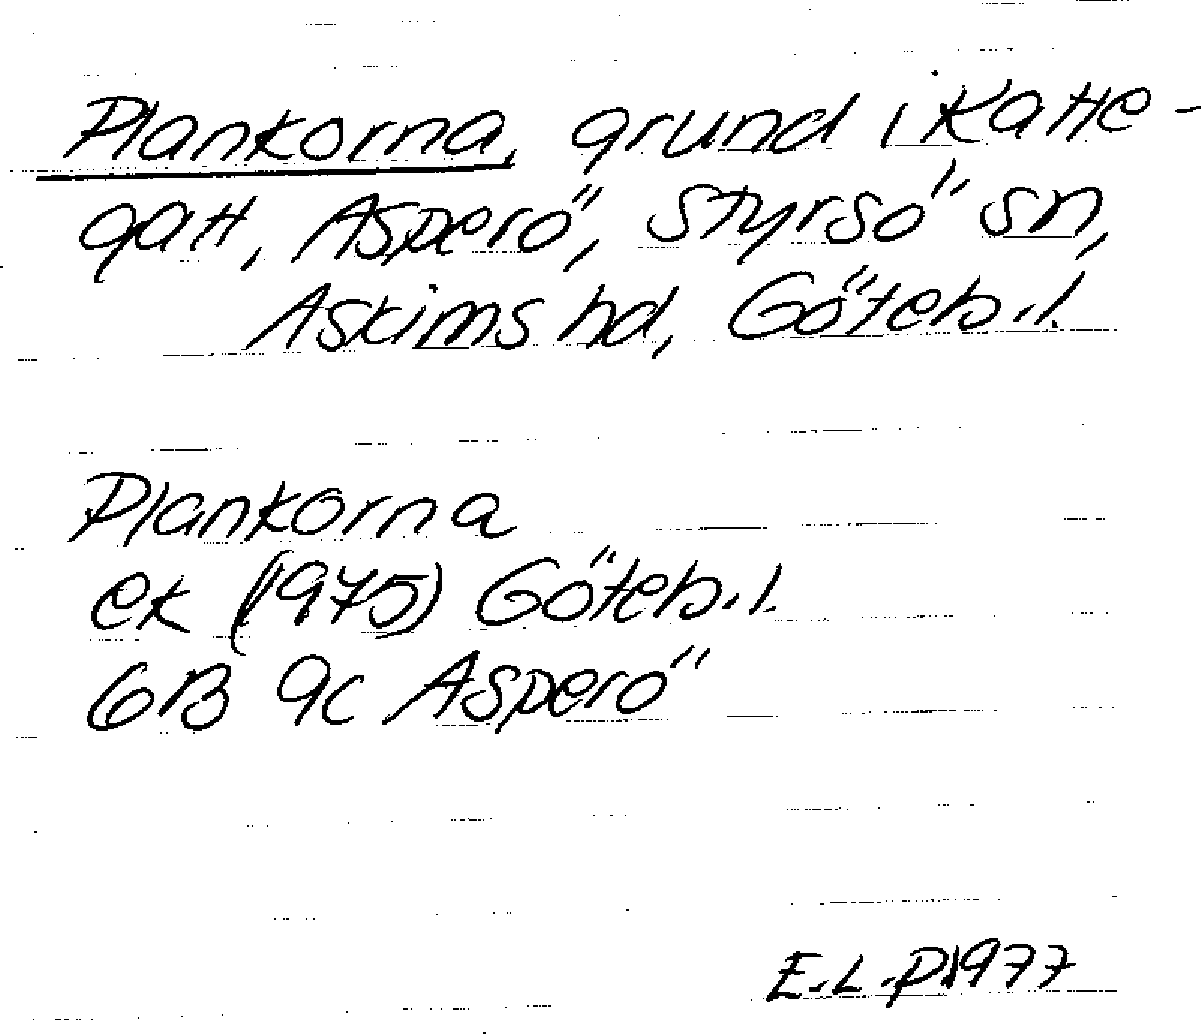 Plankorna, grund i Katte-
gatt, Asperö, Styrsö sn,
Askims hd, Göteb. l.
Plankorna
ek (1975) Göteb. l.
6B 9c Asperö
E.L.P 1977